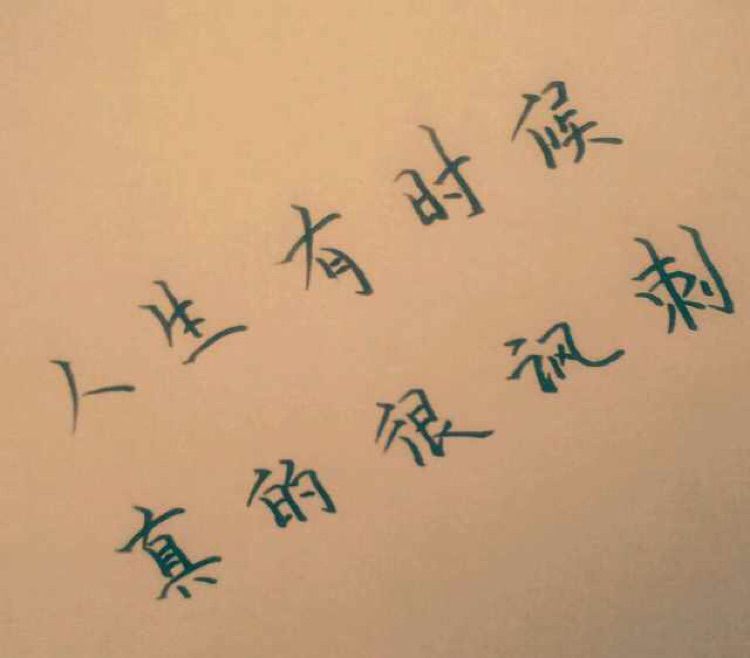 人生有时候
真的很讽刺